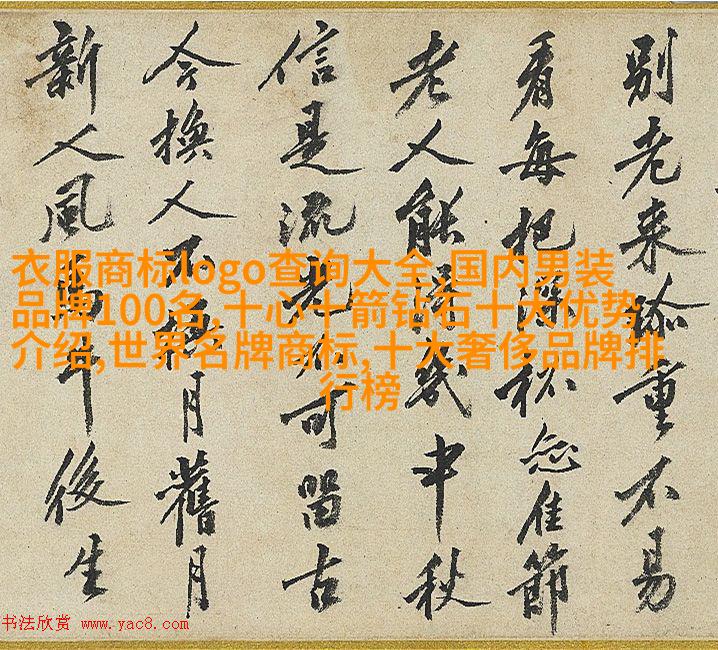 别老来珎重不易
看每把深杯佳節
老人能得幾中秋
信是流光不可留古
今換人不換月舊月
新人風馬牛後生
衣服商标logo查询大全,国内男装
品牌100名,十心十箭钻石十大优势
介绍,世界名牌商标,十大奢侈品牌排
行榜
书法欣赏 www.yac8.com